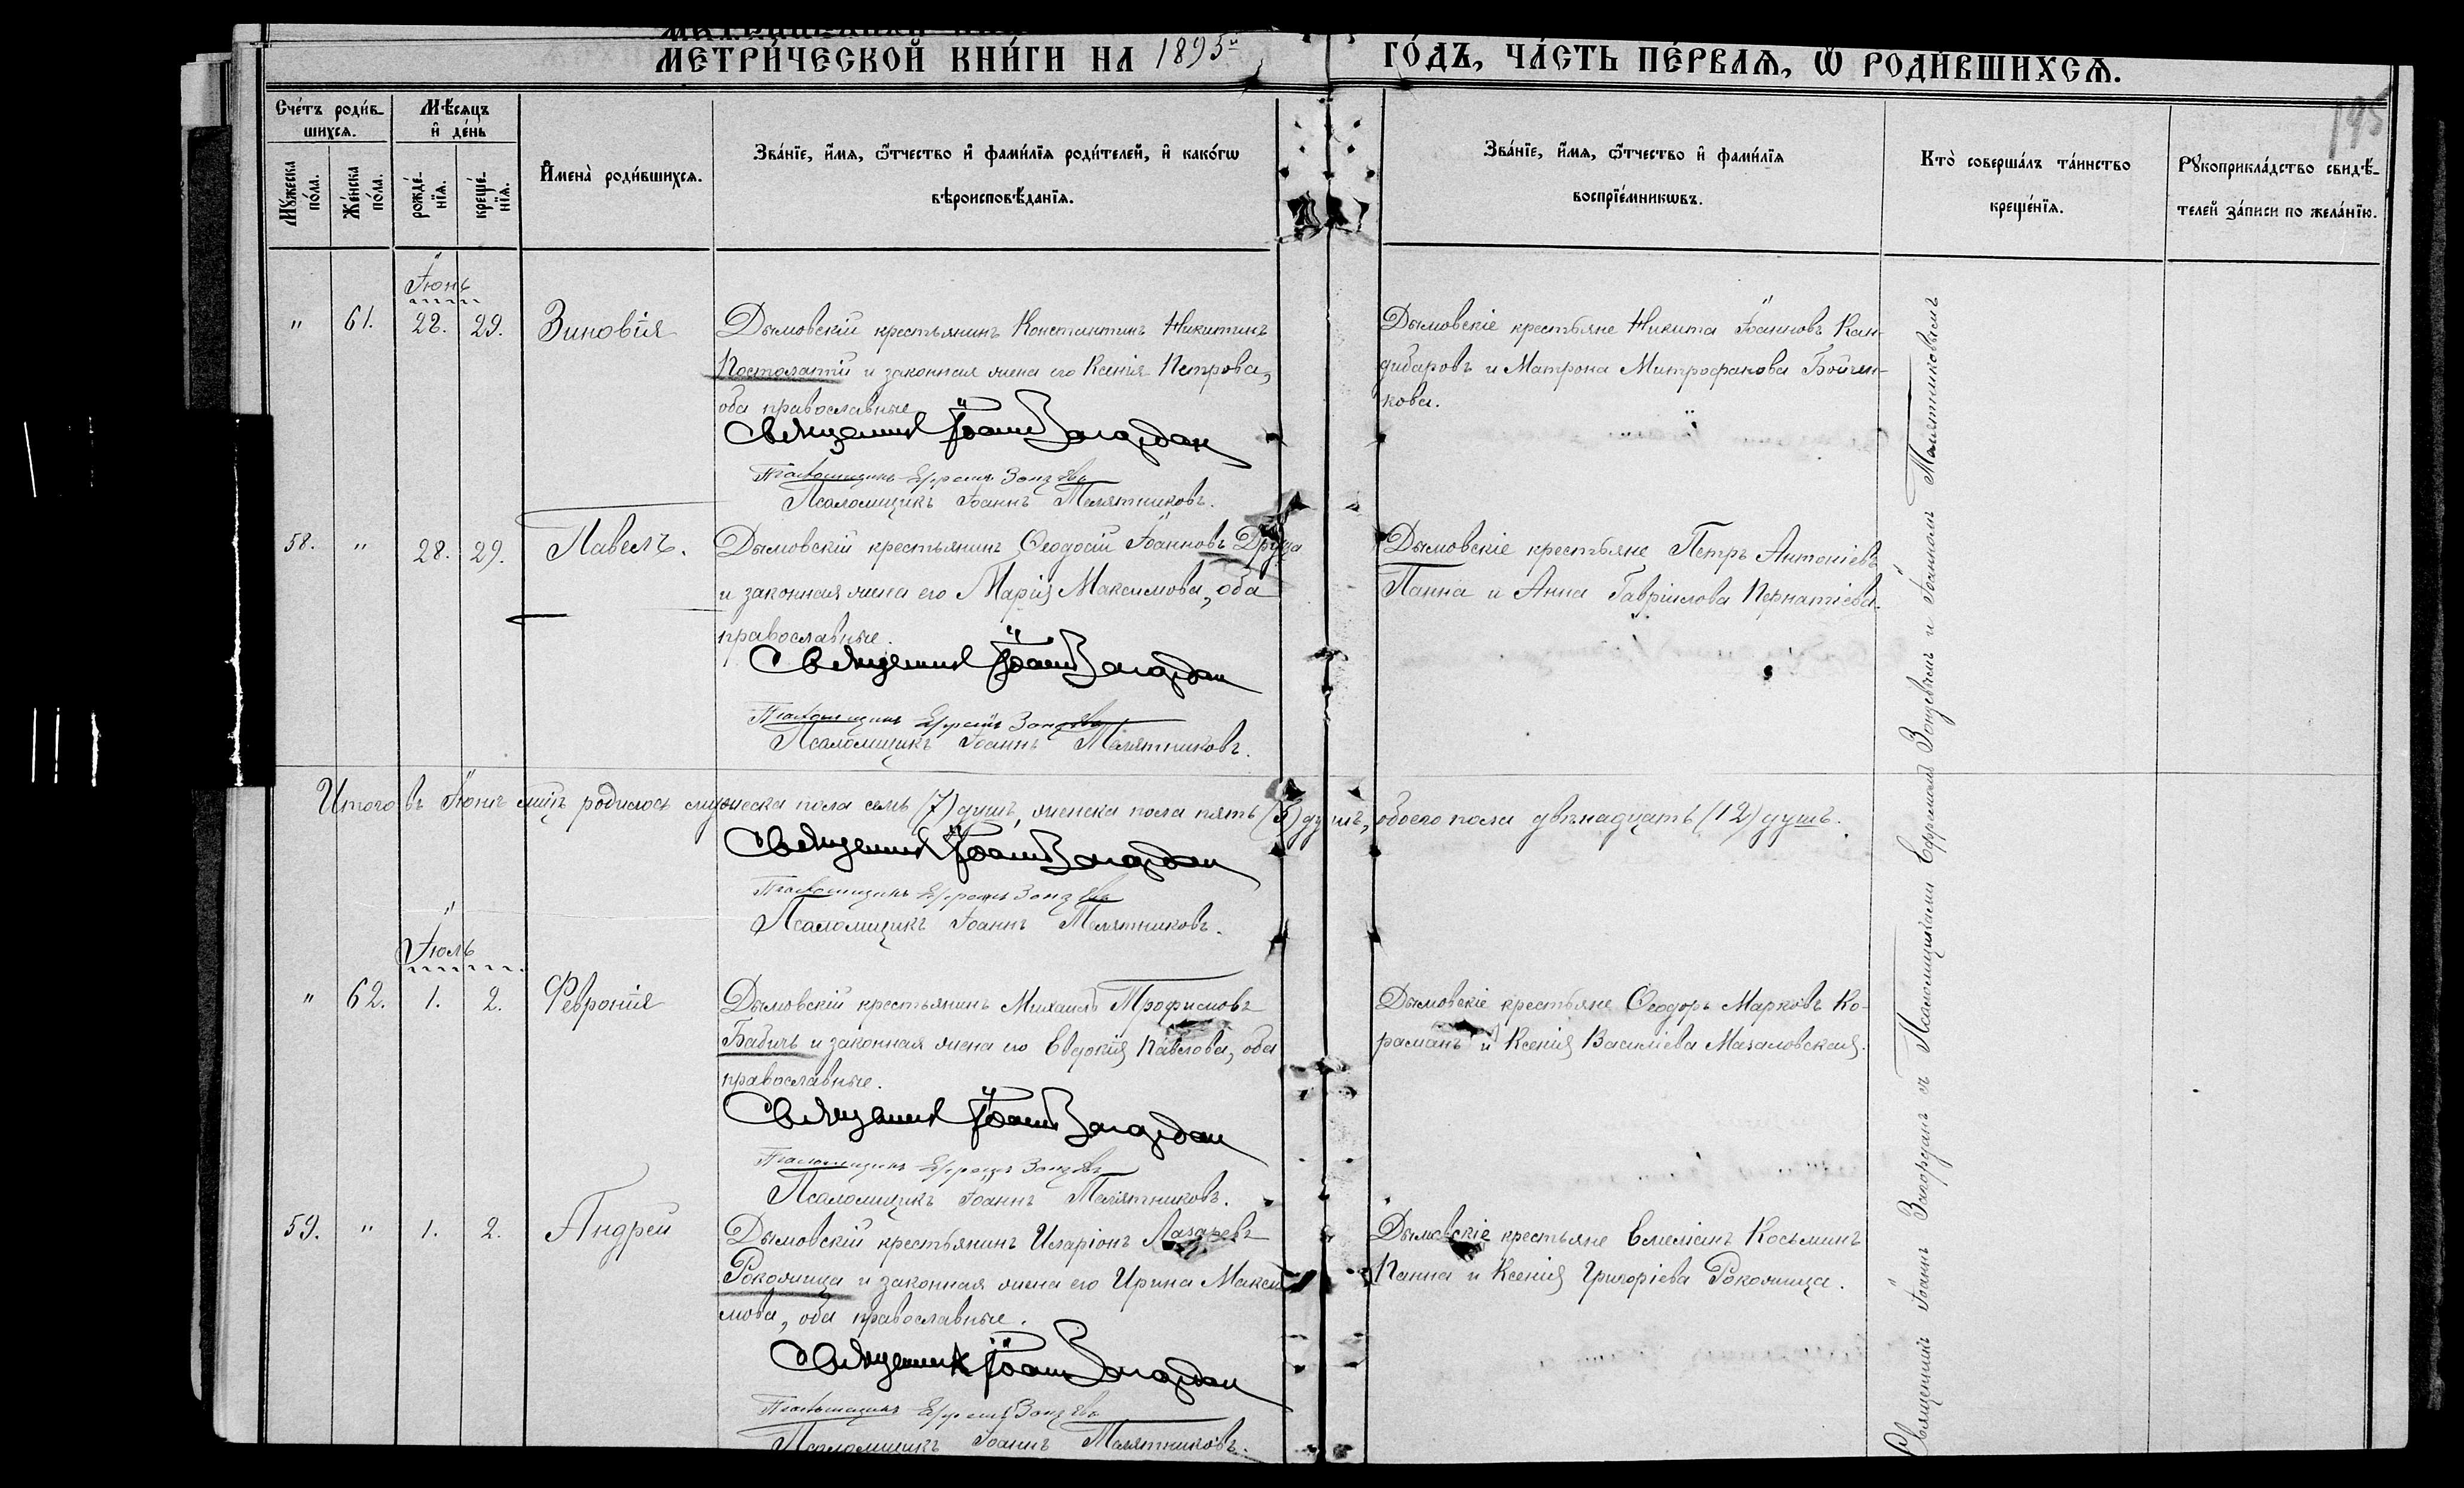 МЕТРИ́ЧЕСКОЙ КНИ́ГИ НА 1895й ГО́ДЪ, ЧА́СТЬ ПЕ́РВАѦ, Ѡ РОДИ́ВШИХСѦ.
195
Сче́тъ роди́в-
шихсѧ.
Мѣ́сяцъ
и҆ де́нь
Мꙋ́жеска
по́ла.
Же́нска
по́ла.
рожде́-
нїѧ.
креще́-
нїѧ.
И҆мена̀ роди́вшихсѧ.
Зва́нїе, и҆́мѧ, ѻ҆́тчество и҆ фами́лїѧ роди́телей, и҆ како́гѡ
вѣроисповѣ́данїѧ.
Зва́нїе, и҆́мѧ, ѻ҆́тчество и҆ фами́лїѧ
воспрїе́мникѡвъ.
Кто̀ соверша́лъ та́инство
креще́нїѧ.
Рꙋкоприкла́дство свидѣ́-
телей за́писи по жела́нїю.
Іюнь
" 61. 28. 29. Зиновія
Дымовскій крестьянинъ Константинъ Никитинъ
Постолатій и законная жена его Ксенія Петрова,
оба православные
Священникъ Іоаннъ Загордан
Псаломщикъ Ефремъ Зонцевъ
Псаломщикъ Іоаннъ Маятниковъ.
Дымовскіе крестьяне Никита Іоанновъ Кан-
дибаровъ и Матрона Митрофанова Бойчен-
кова.
58. " 28. 29. Павелъ.
Дымовскій крестьянинъ Ѳеодосій Іоанновъ Друца
и законная жена его Марія Максимова, оба
православные.
Священникъ Іоаннъ Загордан
Псаломщикъ Ефремъ Зонцевъ
Псаломщикъ Іоаннъ Маятниковъ.
Дымовскіе крестьяне Петръ Антоніевъ
Панна и Анна Гавріилова Игнатіева.
Итого въ Іюнѣ мцѣ родилось мужеска пола семь (7) душъ, женска пола пять (5) душъ, обоего пола двѣнадцать (12) душъ.
Священникъ Іоаннъ Загордан
Псаломщикъ Ефремъ Зонцевъ
Псаломщикъ Іоаннъ Маятниковъ.
Іюль
" 62. 1. 2. Февронія
Дымовскій крестьянинъ Михаилъ Трофимовъ
Бабичъ и законная жена его Евдокія Павлова, оба
православные.
Священникъ Іоаннъ Загордан
Псаломщикъ Ефремъ Зонцевъ
Псаломщикъ Іоаннъ Маятниковъ.
Дымовскіе крестьяне Ѳеодоръ Марковъ Ко-
раманъ и Ксенія Василіева Мазаловская.
59. " 1. 2. Андрей
Дымовскій крестьянинъ Иларіонъ Лазаревъ
Рокожица и законная жена его Ирина Макси-
мова, оба православные.
Священникъ Іоаннъ Загордан
Псаломщикъ Ефремъ Зонцевъ
Псаломщикъ Іоаннъ Маятниковъ.
Дымовскіе крестьяне Емеліанъ Косьминъ
Панна и Ксенія Григоріева Рокожица.
Священникъ Іоаннъ Загорданъ съ Псаломщиками Ефремомъ Зонцевымъ и Іоанномъ Маятниковымъ